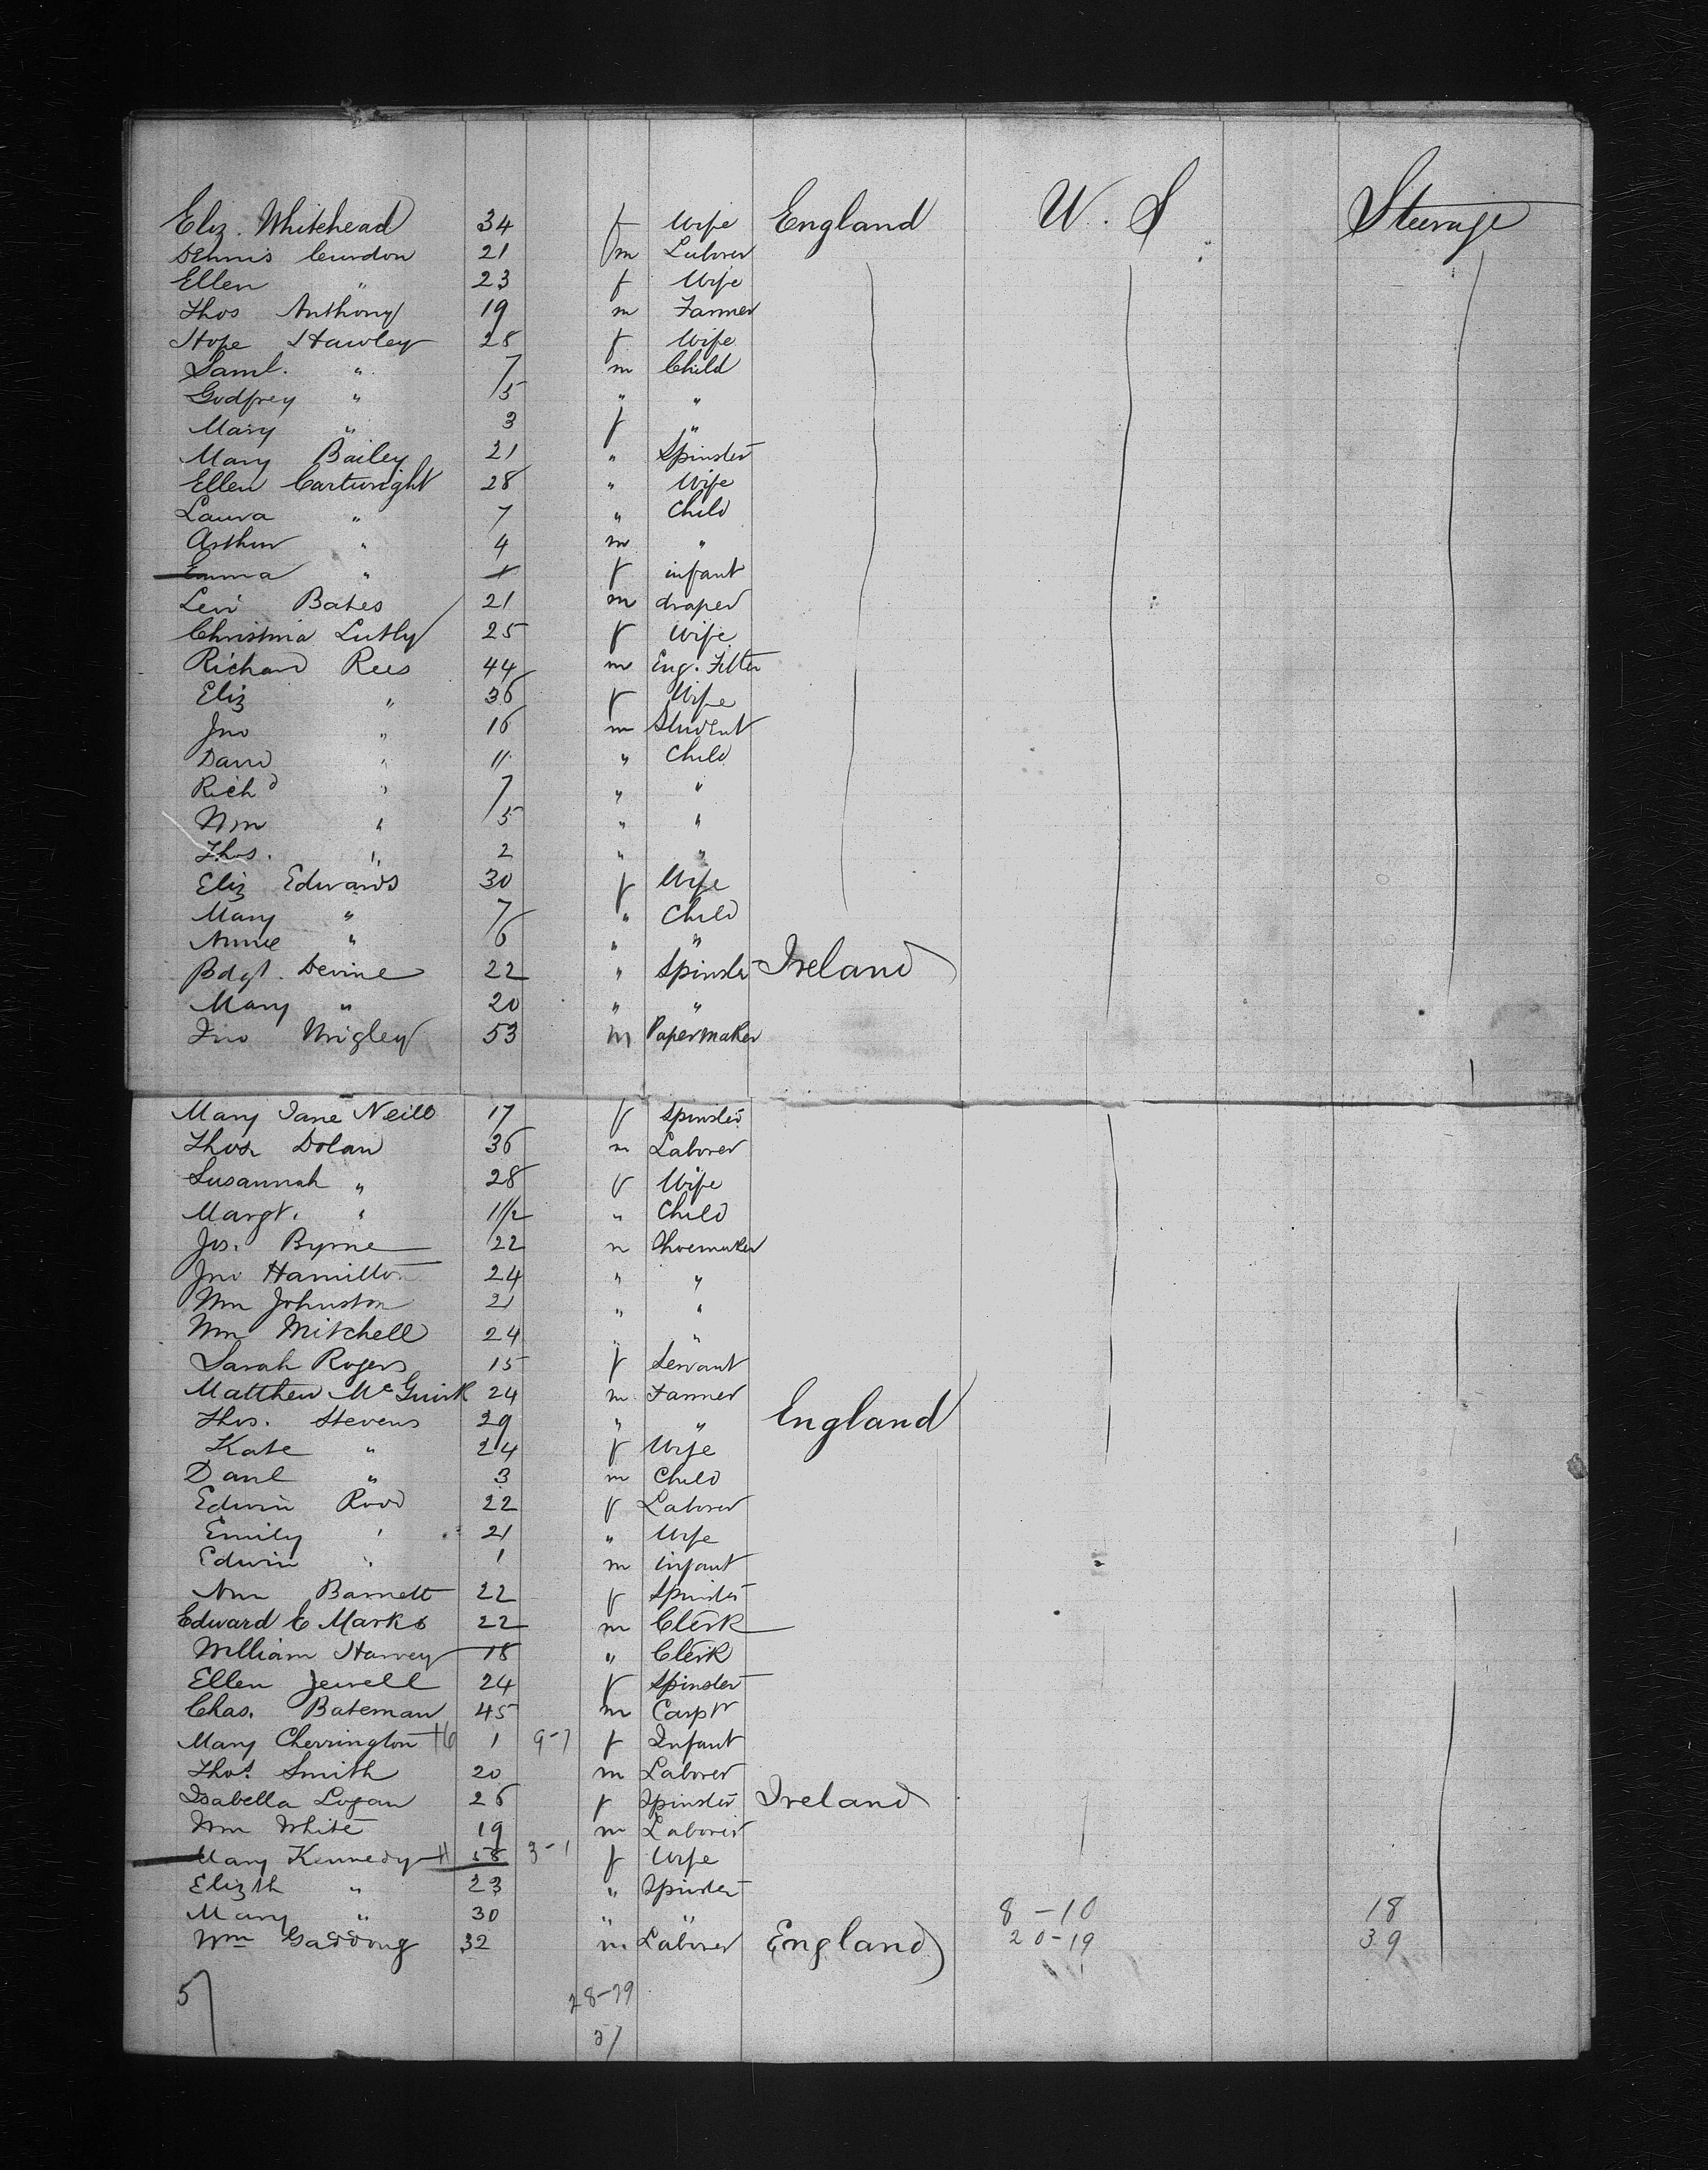 Eliz. Whitehead 34 f Wife England U. S Steerage
Dennis Curdon 21 m Laborer
Ellen " 23 f Wife
Thos Anthony 19 m Farmer
Hope Hawley 28 f Wife
Saml. " 7 m Child
Godfrey " 5 " "
Mary " 3 f "
Mary Bailey 21 " Spinster
Ellen Cartwright 28 " Wife
Laura " 7 " Child
Arthur " 4 m "
Emma " 1 f infant
Levi Bates 21 m draper
Christina Lutly 25 f Wife
Richard Rees 44 m Eng. Fitter
Eliz " 36 f Wife
Jno " 16 m Student
David " 11 " Child
Richd " 7 " "
Wm " 5 " "
Thos. " 2 " "
Eliz Edwards 30 f Wife
Mary " 7 " Child
Annie " 6 " "
Bdgt. Devine 22 " Spinster Ireland
Mary " 20 " "
Jno Wrigley 53 m Papermaker
Mary Jane Neill 17 f Spinster
Thos Dolan 36 m Laborer
Susannah " 28 f Wife
Margt. " 1 1/2 " Child
Jos. Byrne 22 m Shoemaker
Jno Hamilton 24 " "
Wm Johnston 21 " "
Wm Mitchell 24 " "
Sarah Rogers 15 f Servant
Matthew McGuirk 24 m Farmer
Thos. Stevens 29 " " England
Kate " 24 f Wife
Danl " 3 m Child
Edwin Rood 22 f Laborer
Emily " 21 " Wife
Edwin " 1 m infant
Ann Barnett 22 f Spinster
Edward C Marks 22 m Clerk
William Harvey 18 " Clerk
Ellen Jewell 24 f Spinster
Chas. Bateman 45 m Carptr
Mary Cherrington H6 1 9-7 f Infant
Thos. Smith 20 m Laborer
Isabella Logan 26 f Spinster Ireland
Wm White 19 m Laborer
Mary Kennedy H 58 3-1 f Wife
Elizth " 23 " Spinster
Mary " 30 " " 8-10 18
Wm Gaddong 32 m Laborer England 20-19 39
57 28-29
57